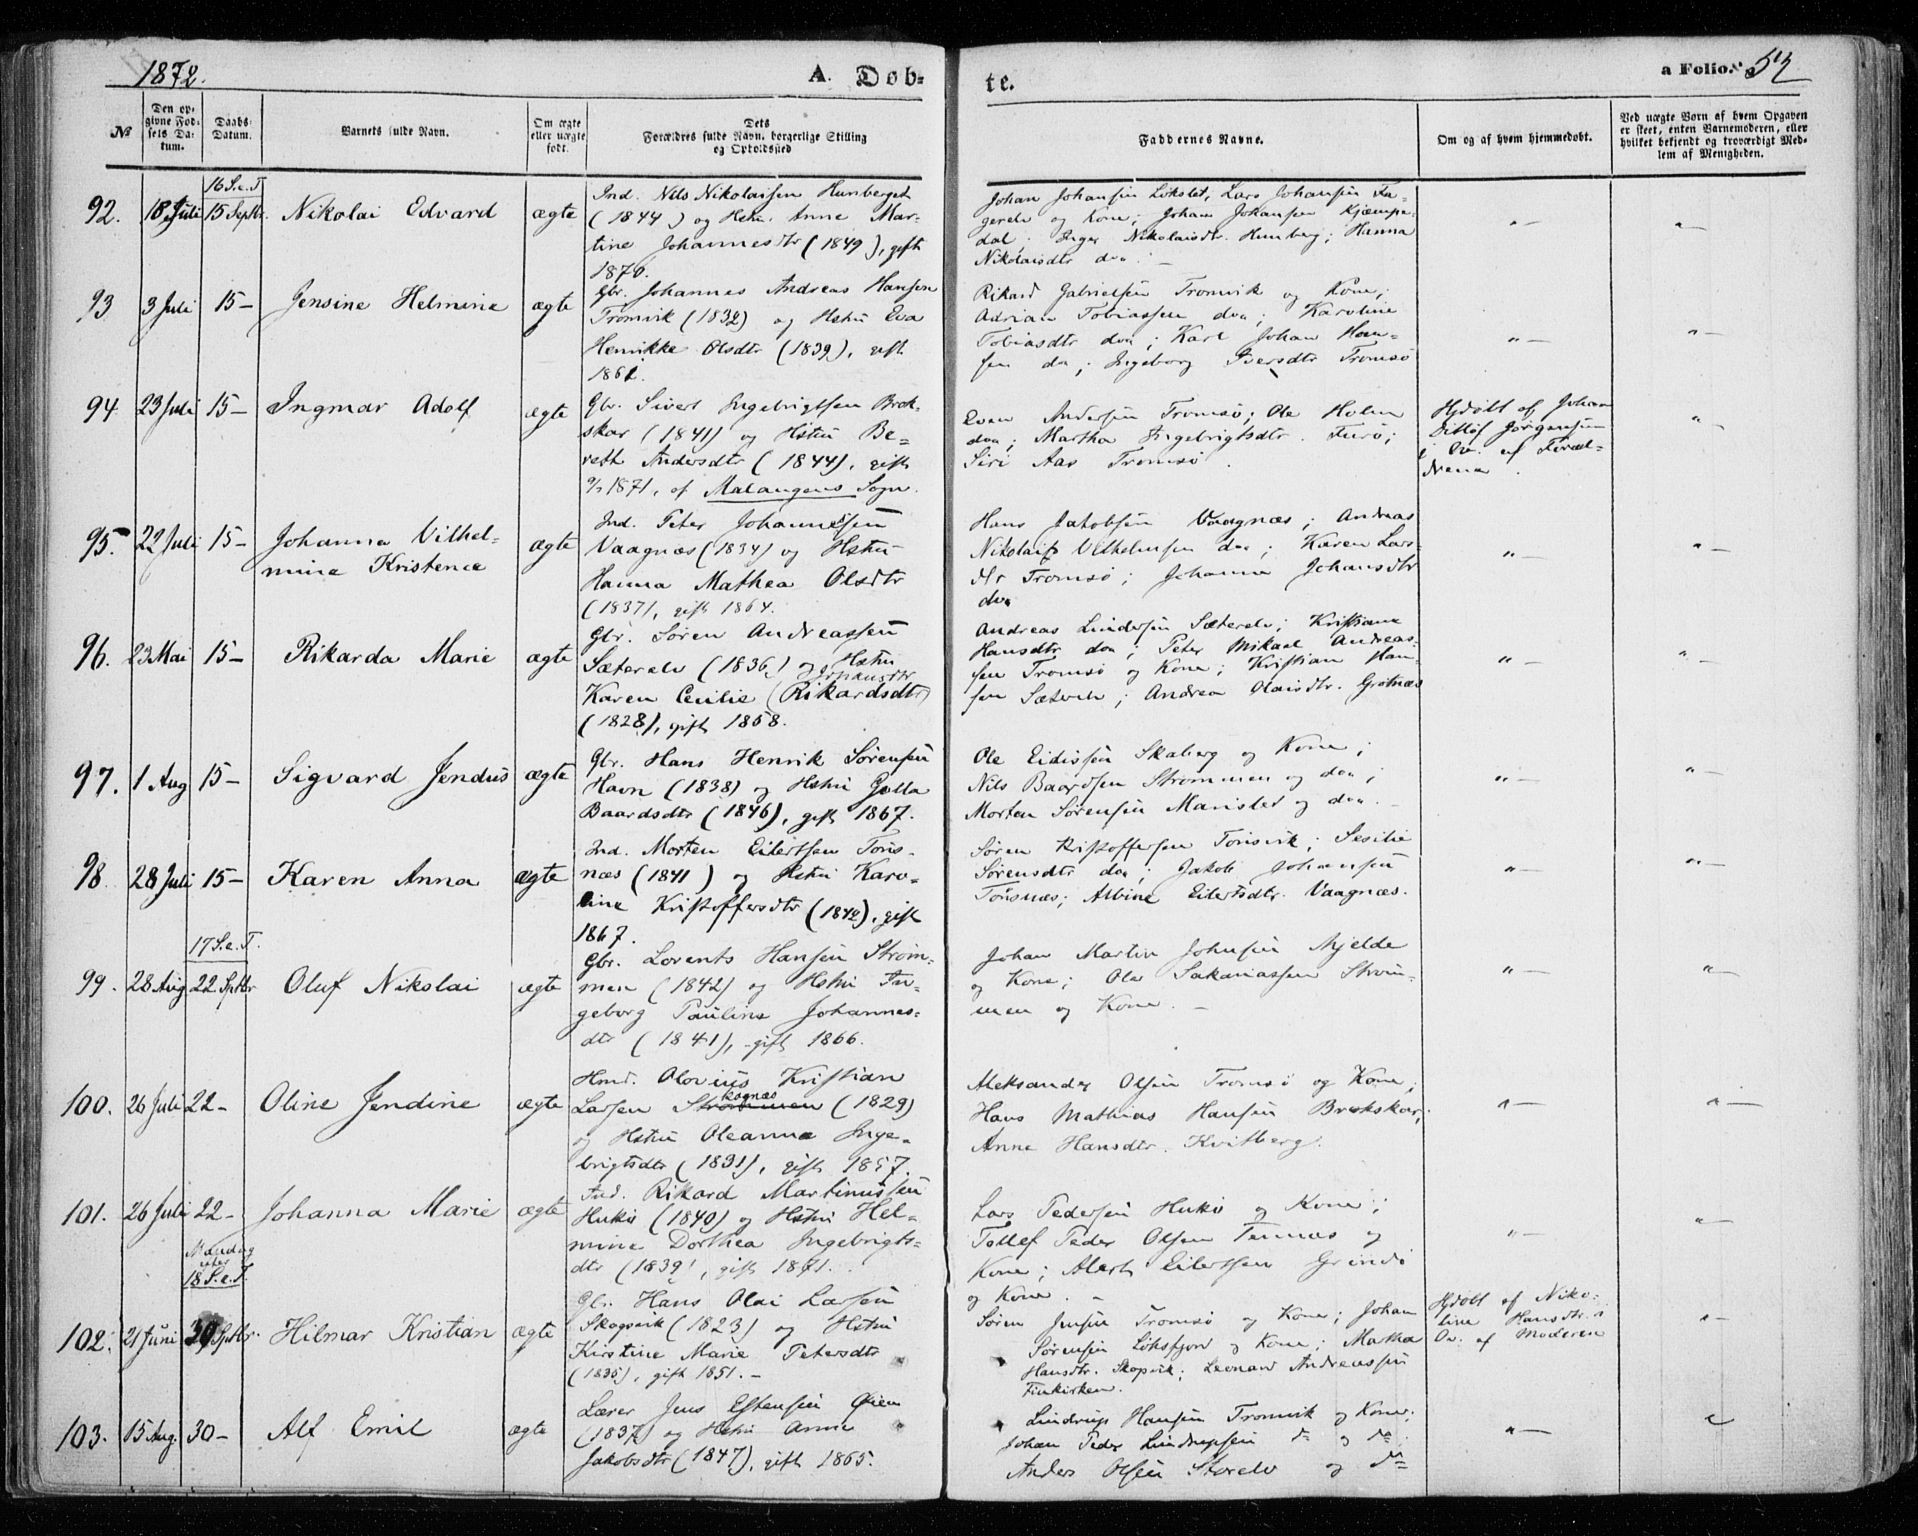 1872.
A. Døb-
te.
a Folio. 52
No
Den op-
givne Fød-
sels Da-
tum.
Daabs-
Datum.
Barnets fulde Navn.
Om ægte
eller uægte
født.
Dets
Forældres fulde Navn, borgerlige Stilling
og Opholdssted
Faddernes Navne.
Om og af hvem hjemmedøbt.
Ved uægte Børn af hvem Opgaven
er skeet, enten Barnemoderen, eller
hvilket bekjendt og troværdigt Med-
lem af Menigheden.
16 S.e.T
92. 18 Juli 15 Septbr. Nikolai Edvard ægte
Ind. Nils Nikolaissen Hunberget
(1844) og Hstru Anne Mar-
tine Johannesdtr (1849), gift
1870.
Johan Johansen Løkslet, Lars Johansen Fa-
gerelv og Kone; Johan Johansen Kjæmpe-
dal; Inger Nikolaisdtr. Hunberg; Hanna
Nikolaisdtr do.
93 3 Juli 15- Jensine Helmine ægte
Gbr. Johannes Andreas Hansen
Tromvik (1832) og Hstru Eva
Henrikke Olsdtr (1839), gift
1861.
Rikard Gabrielsen Tromvik og Kone;
Adrian Tobiassen do; Karoline
Tobiasdtr do; Karl Johan Han-
sen do; Ingeborg Iversdtr Tromsø
94 23 Juli 15- Ingmar Adolf ægte
Gbr. Sivert Ingebrigtsen Brok-
skar (1841) og Hstru Be-
reth Andersdtr (1844), gift
1871, af Malangens Sogn.
Even Andersen Tromsø; Ole Holm
do; Martha Ingebrigtsdtr. Furø;
Siri Aas Tromsø.
Hjdøbt af Johan
Ditlöf Jørgensen
i Ov. af Foræl-
drene.
95. 22 Juli 15- Johanna Vilhel-
mine Kristence ægte
Ind. Peter Johannessen
Vaagnæs (1834) og Hstru
Hanna Mathea Olsdtr
(1837), gift 1864.
Hans Jakobsen Vaagnæs; Andreas
Nikolai Vilhelmsen do; Karen Lars-
dtr Tromsø; Johanna Johansdtr
do
96. 23 Mai 15- Rikarda Marie ægte
Gbr. Søren Andreassen
Sæterelv (1836) og Hstru
Johansdtr
Karen Cecilie (Rikardsdtr)
(1828), gift 1858.
Andreas Lindersen Sæterelv; Kristiane
Hansdtr do; Peter Mikael Andreas-
sen Tromsø og Kone; Kristian Han-
sen Sæterelv; Andrea Olaisdtr. Grøtnæs
97. 1 Aug 15- Sigvard Jendus ægte
Gbr. Hans Henrik Sørensen
Havn (1838) og Hstru Golla
Baardsdtr (1846), gift 1867.
Ole Eidissen Skaberg og Kone;
Nils Baardsen Strømmen og do;
Morten Sørensen Marislet og do.
98. 28 Juli 15- Karen Anna ægte
Ind. Morten Eilertsen Tøns-
næs (1841) og Hstru Karo-
line Kristoffersdtr (1842), gift
1867.
Søren Kristoffersen Tønsvik; Sesilie
Sørensdtr do; Jakob Johansen
Tønsnæs; Albine Eilertsdtr. Vaagnæs.
17 S.e.T.
99. 28 Aug 22 Septbr Oluf Nikolai ægte
Gbr. Lorents Hansen Strøm-
men (1842) og Hstru In-
geborg Pauline Johannes-
dtr (1841), gift 1866.
Johan Martin Johnsen Mjelde
og Kone; Ole Sakariassen Strøm-
men og Kone.
100. 26 Juli 22- Oline Jendine ægte
Hmd. Olovius Kristian
Larsen Strømmen (1829)
og Hstru Oleanna Inge-
brigtsdtr (1831), gift 1857.
Aleksander Olsen Tromsø og Kone;
Hans Mathias Hansen Brokskar;
Anne Hansdtr. Kvitberg.
101. 26 Juli 22- Johanna Marie ægte
Ind. Rikard Martinussen
Hukø (1840) og Hstru Hel-
mine Dorthea Ingebrigts-
dtr (1839), gift 1871.
Lars Pedersen Hukø og Kone;
Tollef Peder Olsen Tennæs og
Kone; Alert Eilertsen Grindø
og Kone.
Mandag
efter
18 S.e.T.
102. 21 Juni 30 Septbr. Hilmar Kristian ægte
Gbr. Hans Olai Larsen
Skogsvik (1823) og Hstru
Kirstine Marie Petersdtr
(1835), gift 1851.
Søren Jensen Tromsø og Kone; Johan
Sørensen Løksfjord og Kone; Martha
Hansdtr. Skogsvik; Leonard Andreassen
Finkirken.
Hjdøbt af Niko-
line Hansdtr. i
Ov. af Moderen
103. 15 Aug. 30- Alf Emil ægte
Lærer Jens Estensen Øien
(1837) og Hstru Anne
Jakobsdtr (1847), gift 1865.
Lindrup Hansen Tromvik og Kone;
Johan Peder Lindrupsen do og do
Anders Olsen Storelv og do